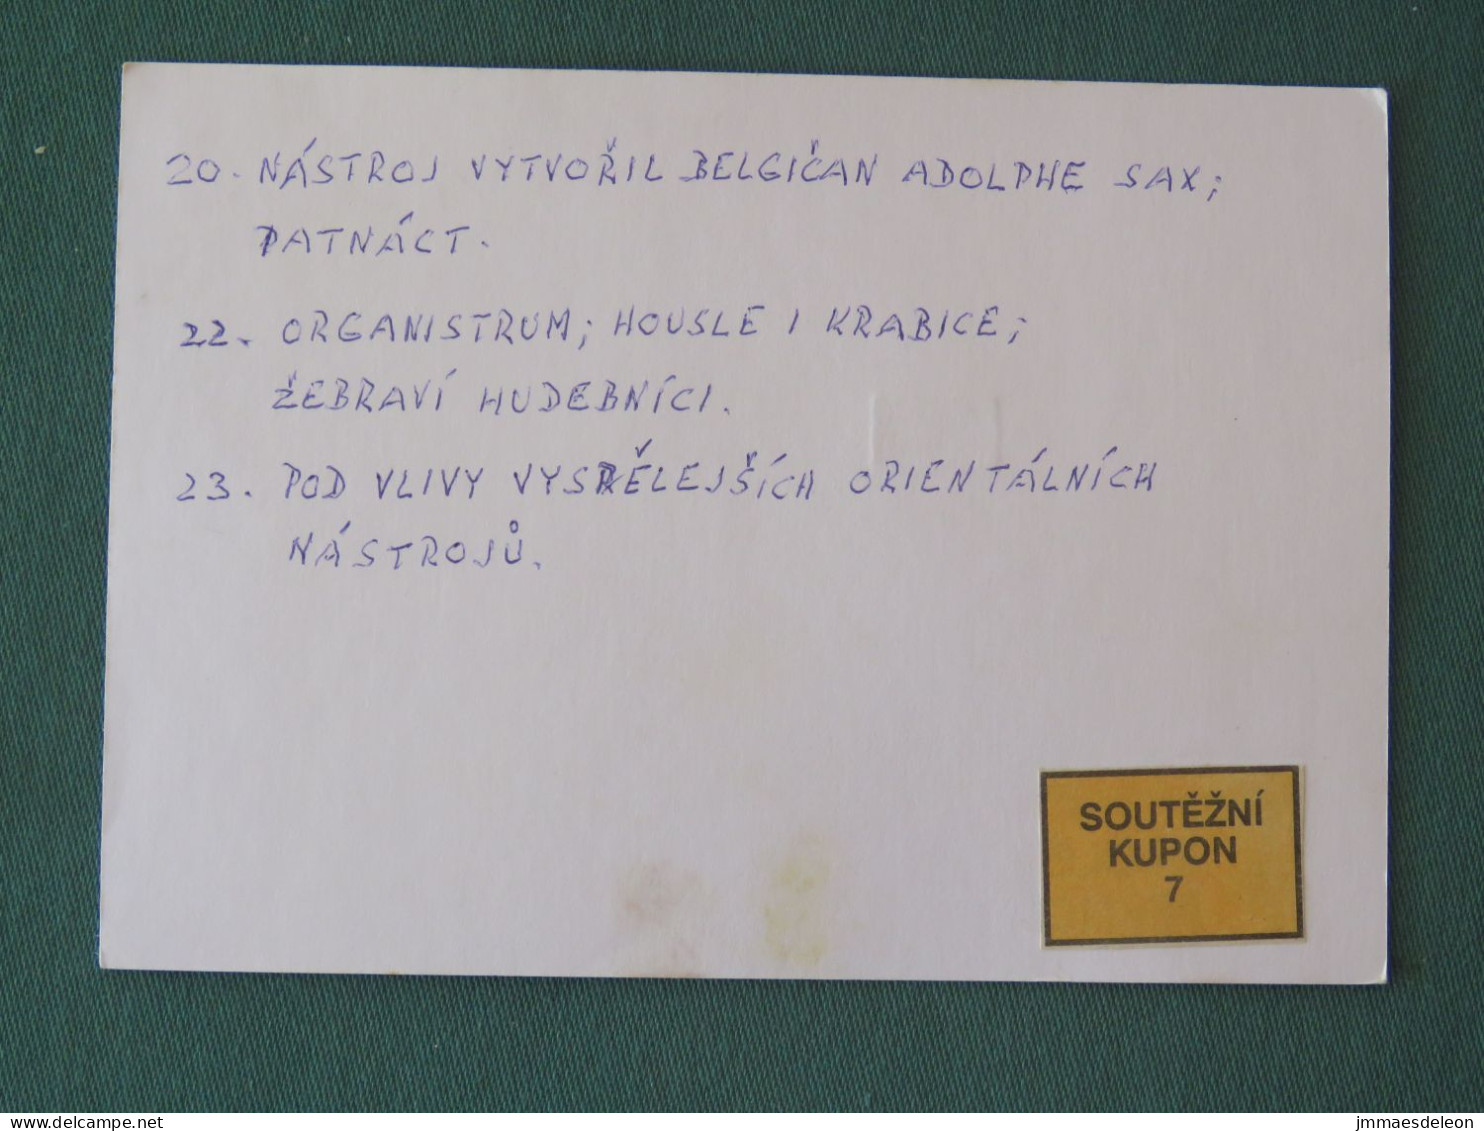 20. NÁSTROJ VYTVOŘIL BELGIČAN ADOLPHE SAX;
PATNÁCT.
22. ORGANISTRUM; HOUSLE I KRABICE;
ŽEBRAVÍ HUDEBNÍCI.
23. POD VLIVY VYSPĚLEJŠÍCH ORIENTÁLNÍCH
NÁSTROJŮ.
SOUTĚŽNÍ
KUPON
7
delcampe.net
jmmaesdeleon